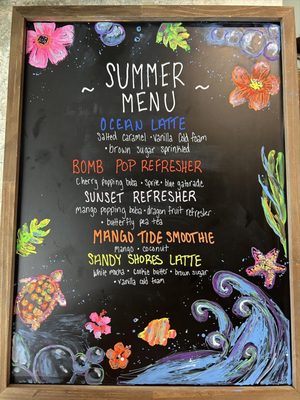 ~ SUMMER ~
MENU
OCEAN LATTE
Salted caramel • Vanilla Cold foam
• Brown Sugar sprinkled
BOMB POP REFRESHER
Cherry popping boba • Sprite • blue gatorade
SUNSET REFRESHER
mango popping boba • dragon fruit refresher
• butterfly pea tea
MANGO TIDE SMOOTHIE
mango • coconut
SANDY SHORES LATTE
White mocha • cookie butter • brown sugar
• vanilla cold foam